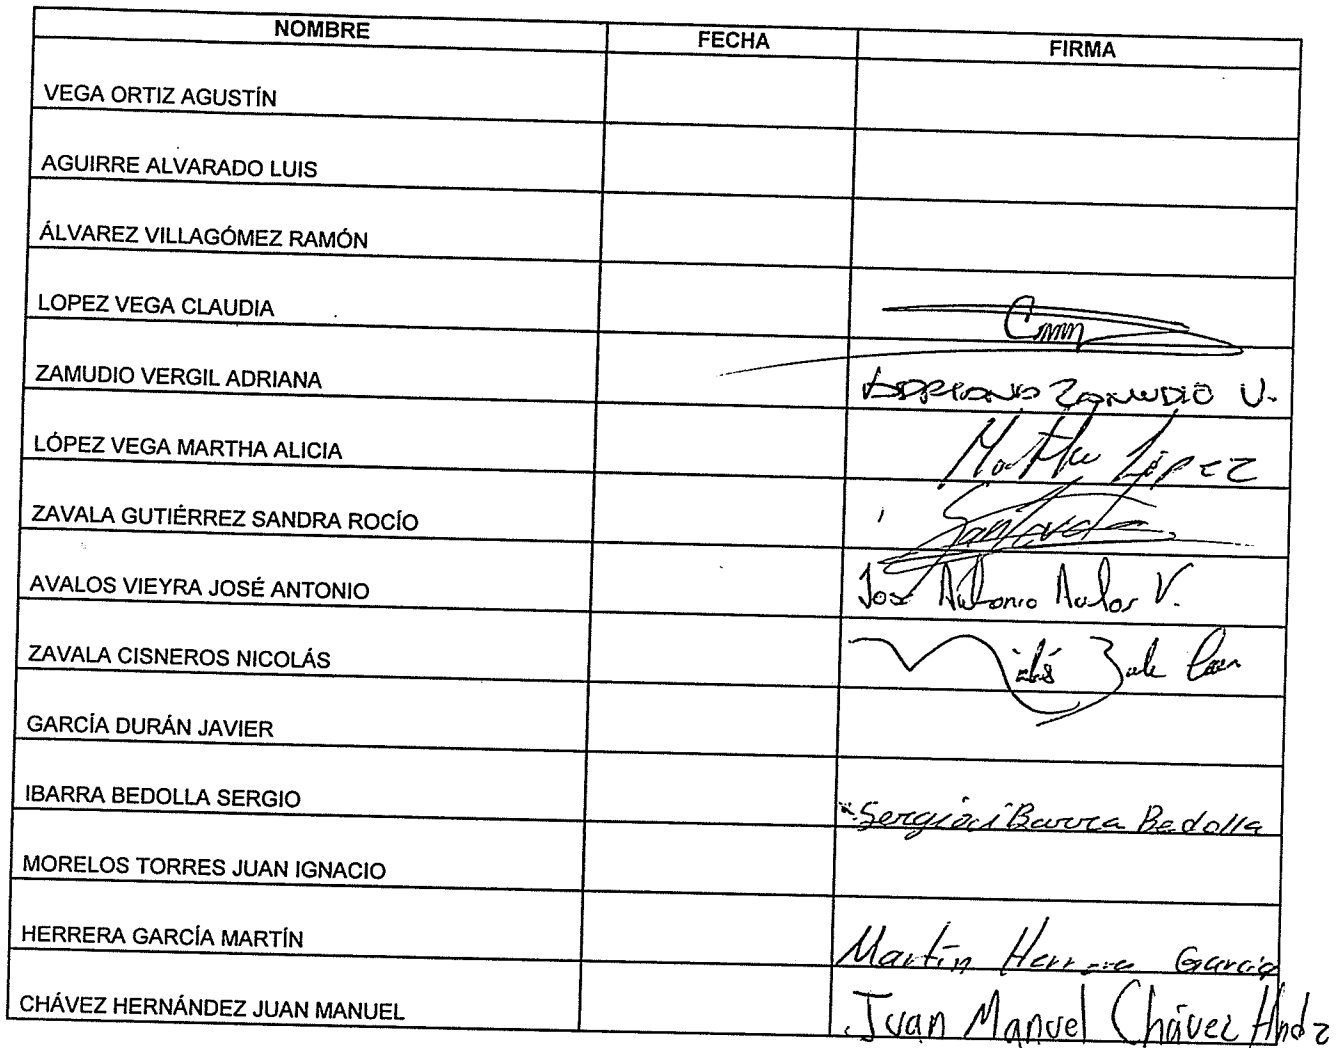 NOMBRE FECHA FIRMA
VEGA ORTIZ AGUSTÍN
AGUIRRE ALVARADO LUIS
ÁLVAREZ VILLAGÓMEZ RAMÓN
LOPEZ VEGA CLAUDIA
ZAMUDIO VERGIL ADRIANA ADRIANA ZAMUDIO V.
LÓPEZ VEGA MARTHA ALICIA Martha López
ZAVALA GUTIÉRREZ SANDRA ROCÍO
AVALOS VIEYRA JOSÉ ANTONIO José Antonio Avalos V.
ZAVALA CISNEROS NICOLÁS
GARCÍA DURÁN JAVIER
IBARRA BEDOLLA SERGIO Sergio iBarra Bedolla
MORELOS TORRES JUAN IGNACIO
HERRERA GARCÍA MARTÍN Martín Herrera García
CHÁVEZ HERNÁNDEZ JUAN MANUEL Juan Manuel Chávez Hndz